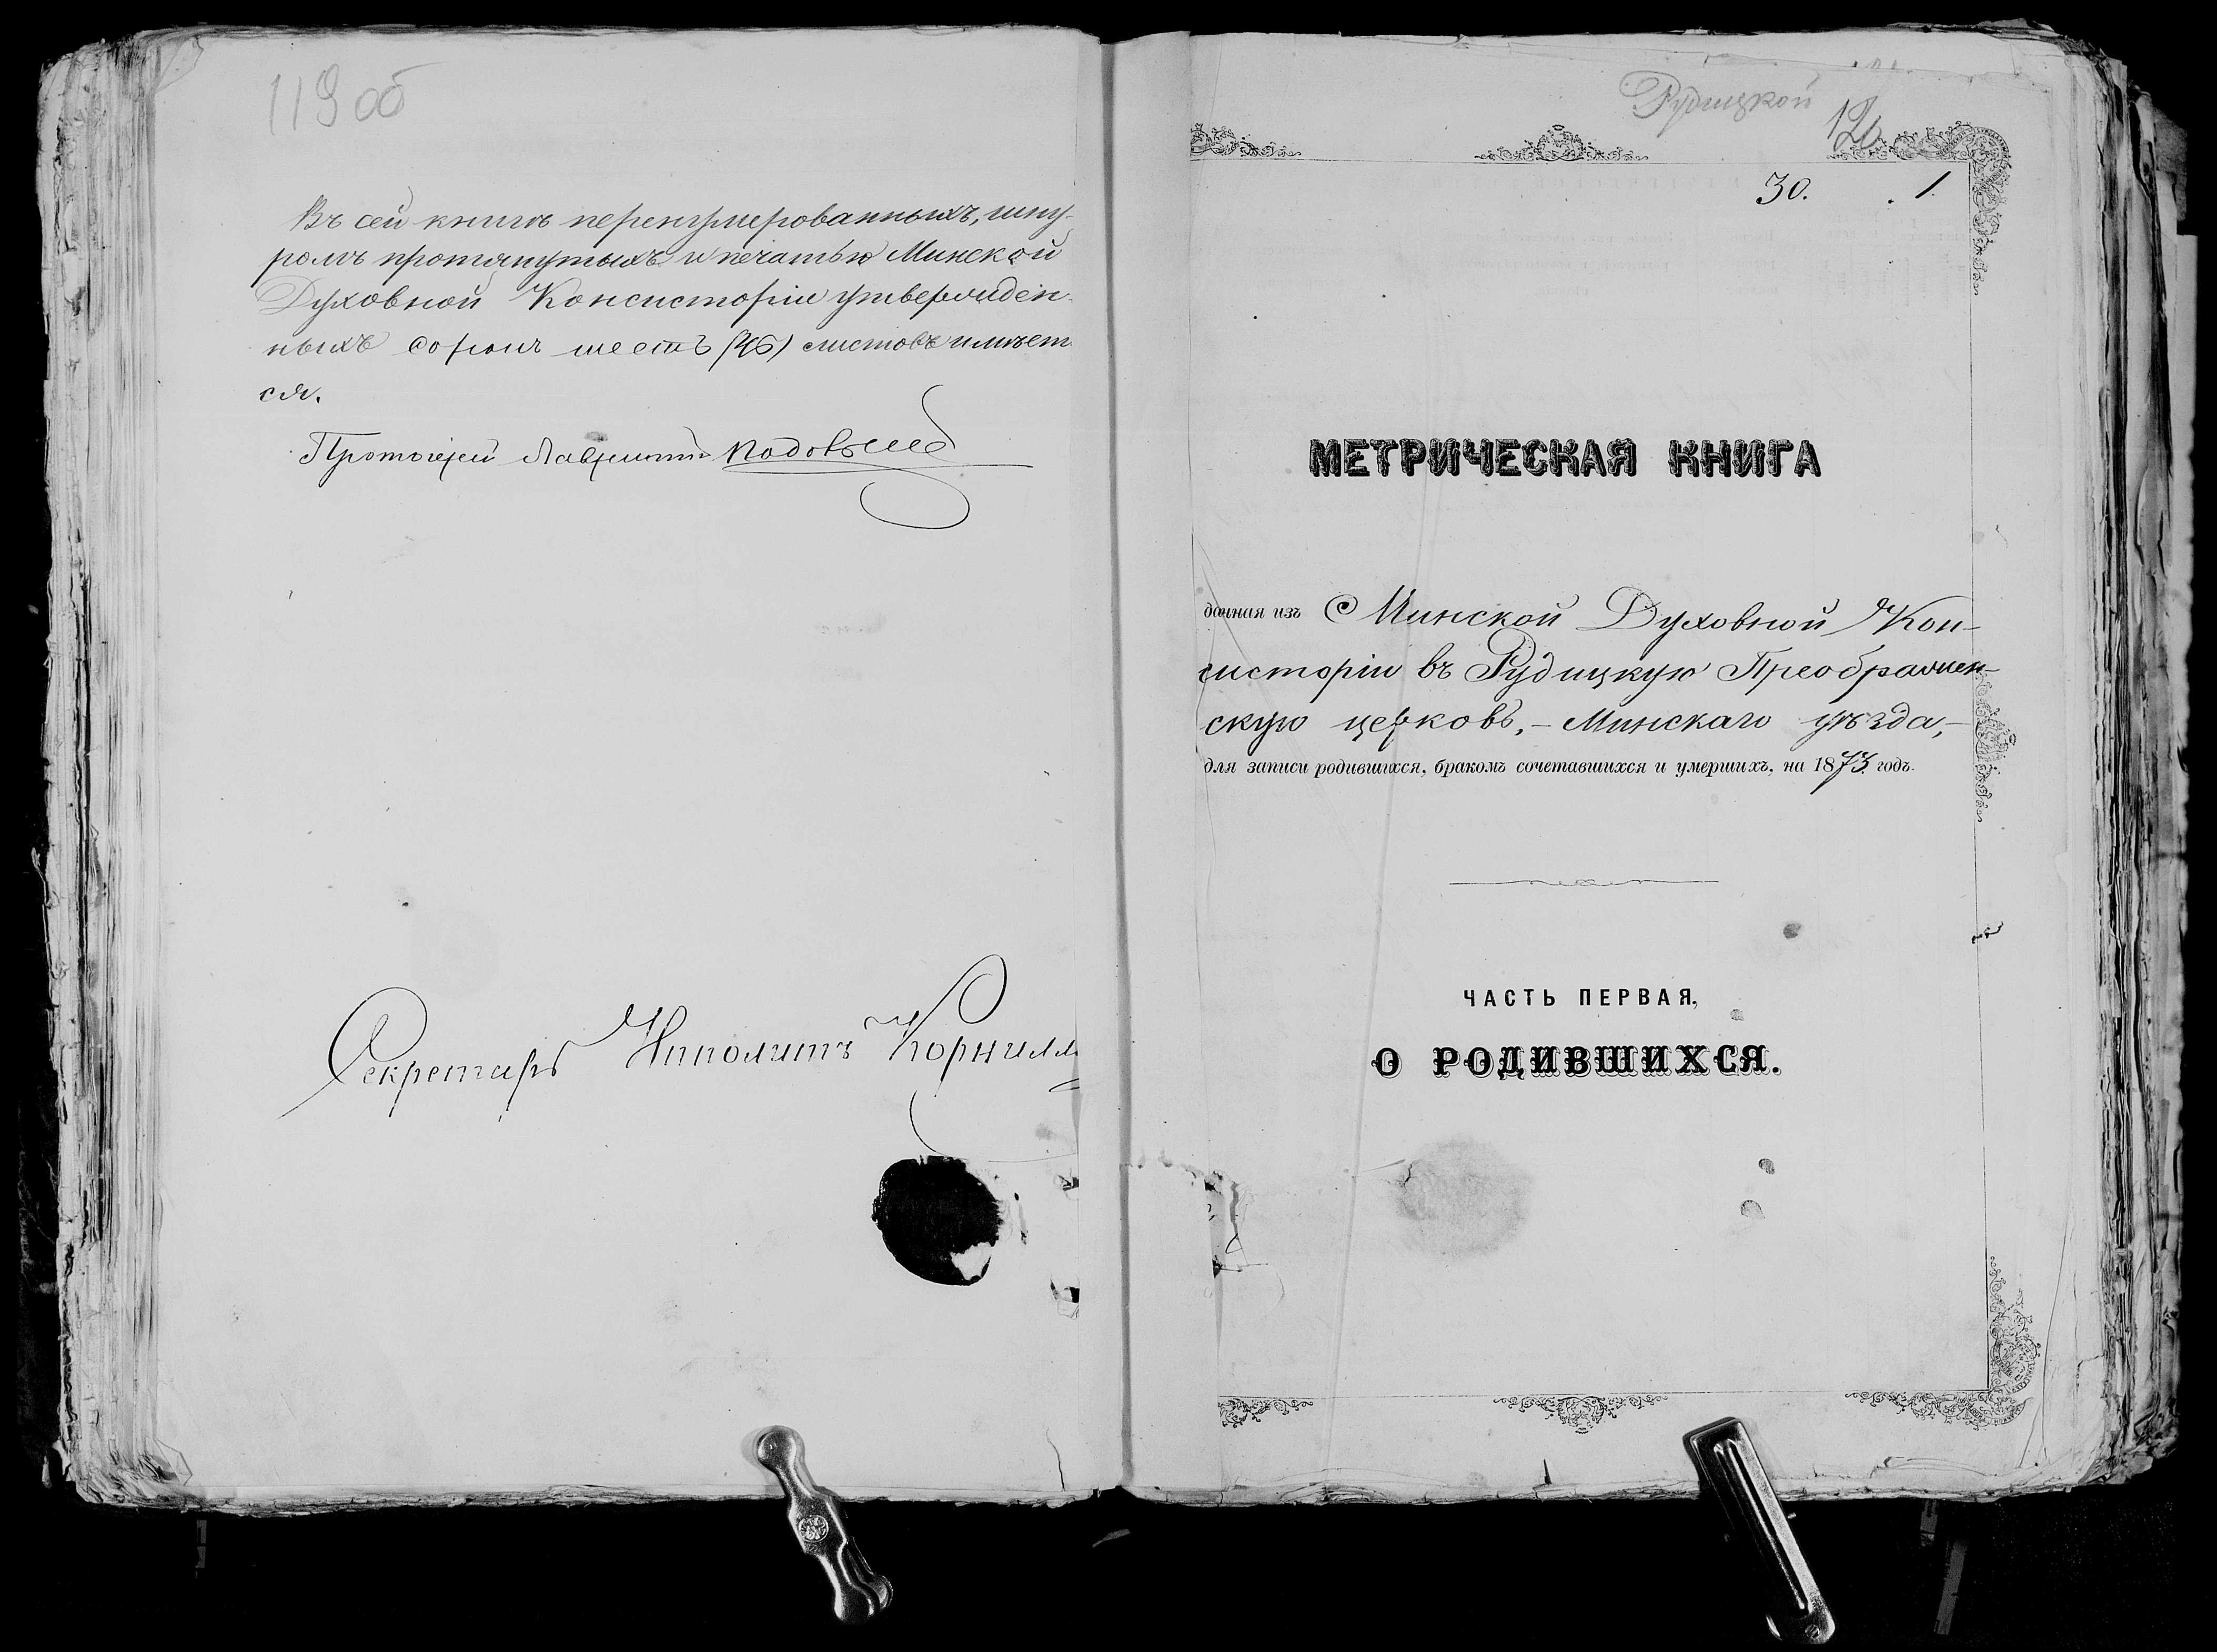 119 об
Въ сей книгѣ перенумерованныхъ, шну-
ромъ протянутыхъ и печатью Минской
Духовной Консисторіи утвержден-
ныхъ сорокъ шесть (46) листовъ имѣет-
ся.
Протоіерей
Секретарь Ипполитъ Корнил
Рудицкой
120
30. 1.
МЕТРИЧЕСКАЯ КНИГА
данная изъ Минской Духовной Кон-
систоріи въ Рудицкую Преображен-
скую церковь,- Минскаго уѣзда,-
для записи родившихся, бракомъ сочетавшихся и умершихъ, на 1873 годъ.
ЧАСТЬ ПЕРВАЯ,
О РОДИВШИХСЯ.